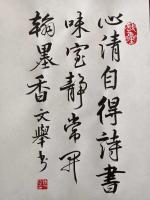 心清自得詩書
味室靜常聞
翰墨香文舉书